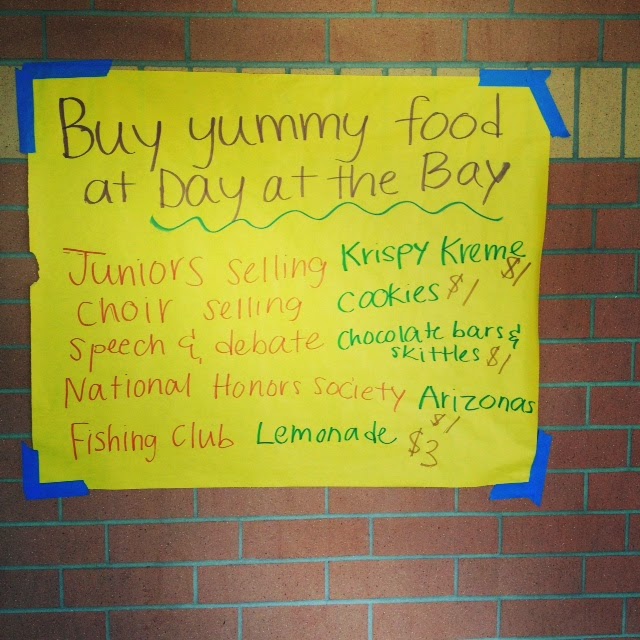 Buy yummy food
at Day at the Bay
Juniors selling Krispy Kreme $1
choir selling cookies $1
speech & debate chocolate bars &
skittles $1
National Honors society Arizonas
$1
Fishing Club Lemonade $3